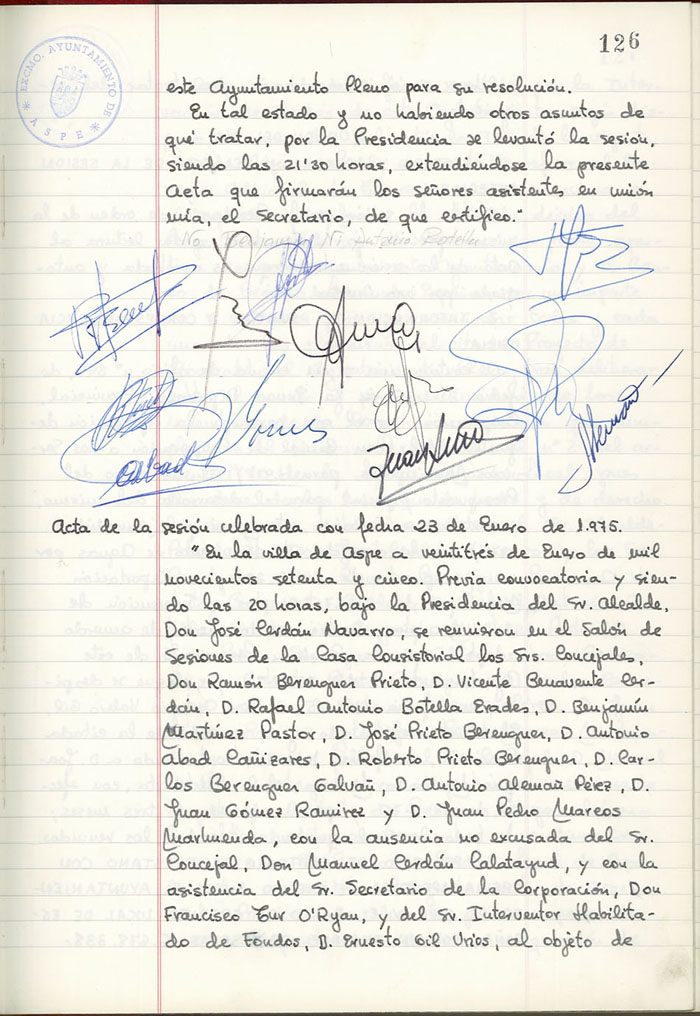 126
EXCMO. AYUNTAMIENTO DE
* ASPE *
este Ayuntamiento Pleno para su resolución.
En tal estado y no habiendo otros asuntos de
qué tratar, por la Presidencia se levantó la sesión,
siendo las 21'30 horas, extendiéndose la presente
Acta que firmarán los señores asistentes en unión
mía, el Secretario, de que certifico."
No Benjamín Ni Antonio Botella
Abad
Juan
Alemañ
Acta de la sesión celebrada con fecha 23 de Enero de 1.975.
"En la villa de Aspe a veintitrés de Enero de mil
novecientos setenta y cinco. Previa convocatoria y sien-
do las 20 horas, bajo la Presidencia del Sr. Alcalde,
Don José Cerdán Navarro, se reunieron en el Salón de
Sesiones de la Casa Consistorial los Srs. Concejales,
Don Ramón Berenguer Prieto, D. Vicente Benavente Cer-
dán, D. Rafael Antonio Botella Erades, D. Benjamín
Martínez Pastor, D. José Prieto Berenguer, D. Antonio
Abad Cañizares, D. Roberto Prieto Berenguer, D. Car-
los Berenguer Galvañ, D. Antonio Alemañ Pérez, D.
Juan Gómez Ramirez y D. Juan Pedro Marcos
Marhuenda, con la ausencia no excusada del Sr.
Concejal, Don Manuel Cerdán Calatayud, y con la
asistencia del Sr. Secretario de la Corporación, Don
Francisco Tur O'Ryan, y del Sr. Interventor Habilita-
do de Fondos, D. Ernesto Gil Urios, al objeto de